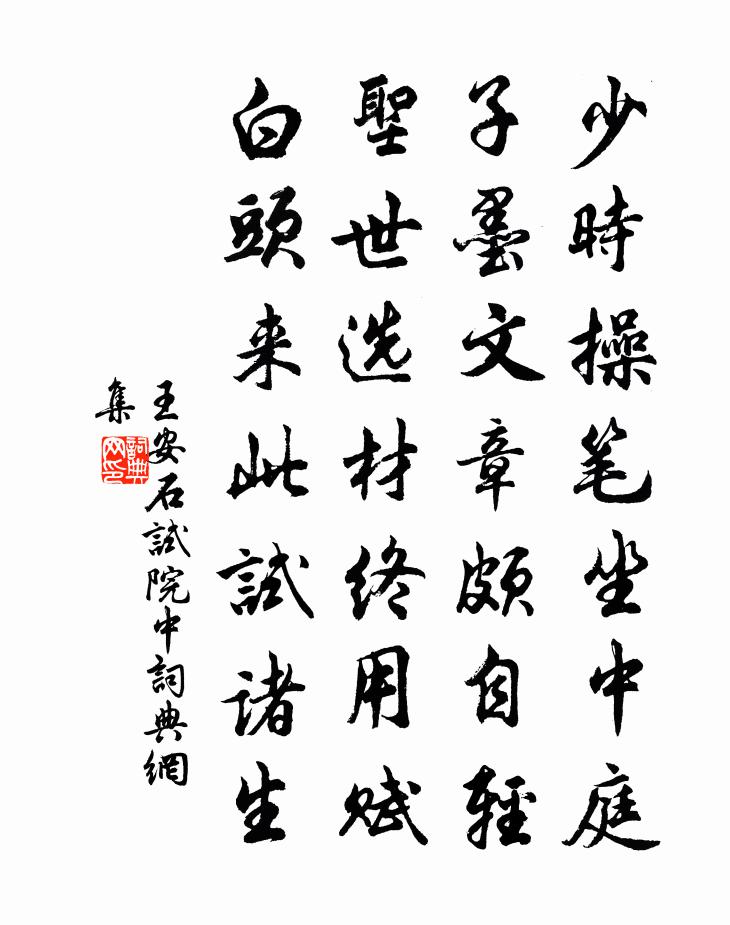 少時操笔坐中庭
子墨文章頗自輕
聖世选材終用赋
白頭来此試諸生
王安石試院中詞典網
集
詞典
网印